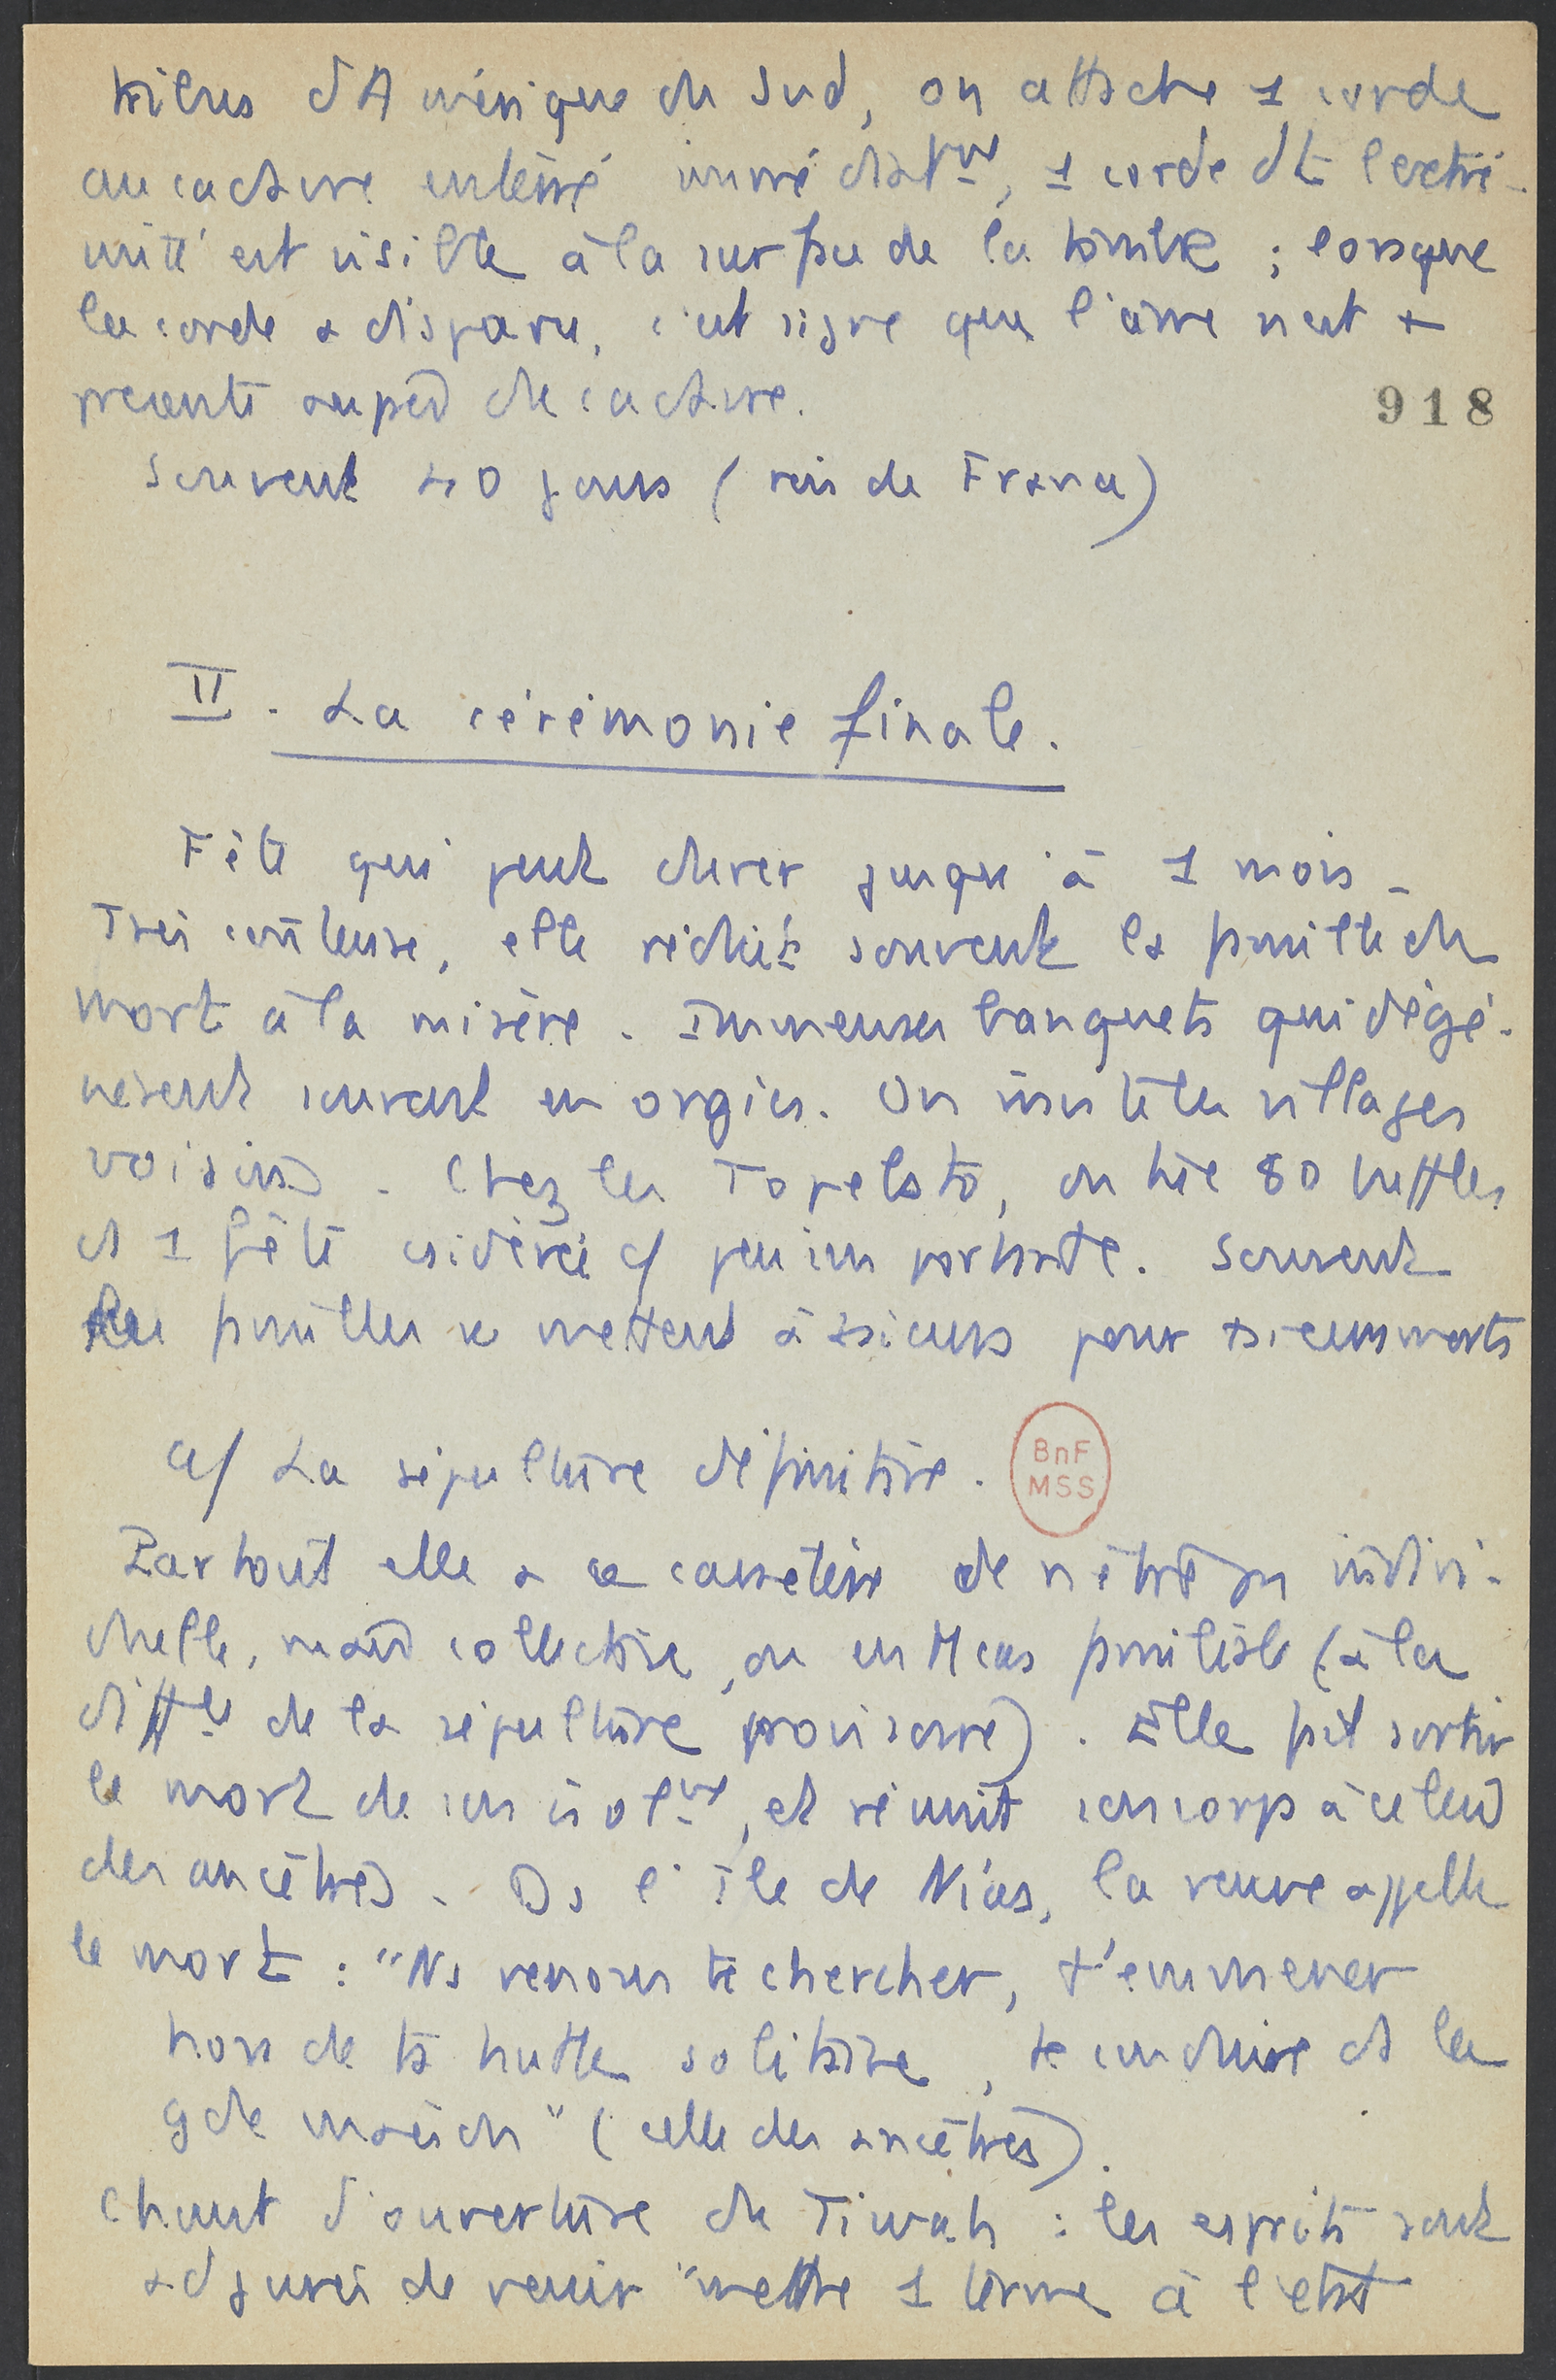 tribus d'Amérique du Sud, on attache 1 corde
au cadavre enterré immédiatme, 1 corde dt l'extré-
mité est visible à la surface de la tombe ; lorsque
la corde a disparu, c'est signe que l'âme n'est +
présente auprès du cadavre.
918
Souvent 40 jours (rois de France)
II. La cérémonie finale.
Fête qui peut durer jusqu'à 1 mois -
Très coûteuse, elle réduit souvent la famille du
mort à la misère. Immenses banquets qui dégé-
nèrent souvent en orgies. On invite les villages
voisins. Chez les Topebato, on tue 80 buffles
ds 1 fête csidérée c/ peu importante. Souvent
les familles se mettent à +sieurs pour +sieurs morts
a/ La sépulture définitive.
BnF
MSS
Partout elle a ce caractère de n'être pas indivi-
duelle, mais collective, ou en tt cas familiale (à la
diffce de la sépulture provisoire). Elle fait sortir
le mort de son isolme, et réunit son corps à celui
des ancêtres. Ds l'île de Nias, la veuve appelle
le mort : "Ns venons te chercher, t'emmener
hors de ta hutte solitaire, te conduire ds la
gde maison" (celle des ancêtres).
Chant d'ouverture du Tiwah : les esprits sont
adjurés de venir "mettre 1 terme à l'état